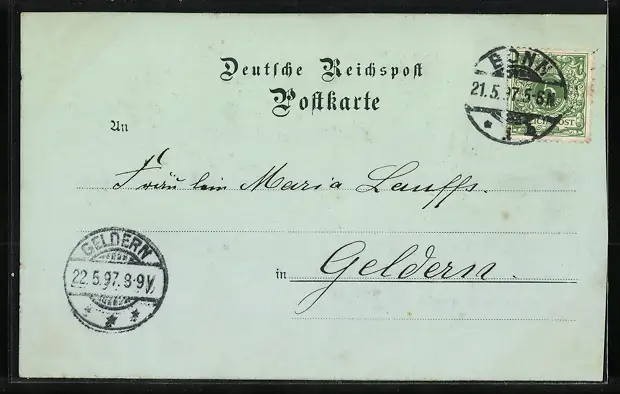 Deutsche Reichspost
Postkarte
BONN
21.5.97.5-6N.
5
An
Fräulein Maria Lauffs.
in Geldern.
GELDERN
22.5.97.8-9V.